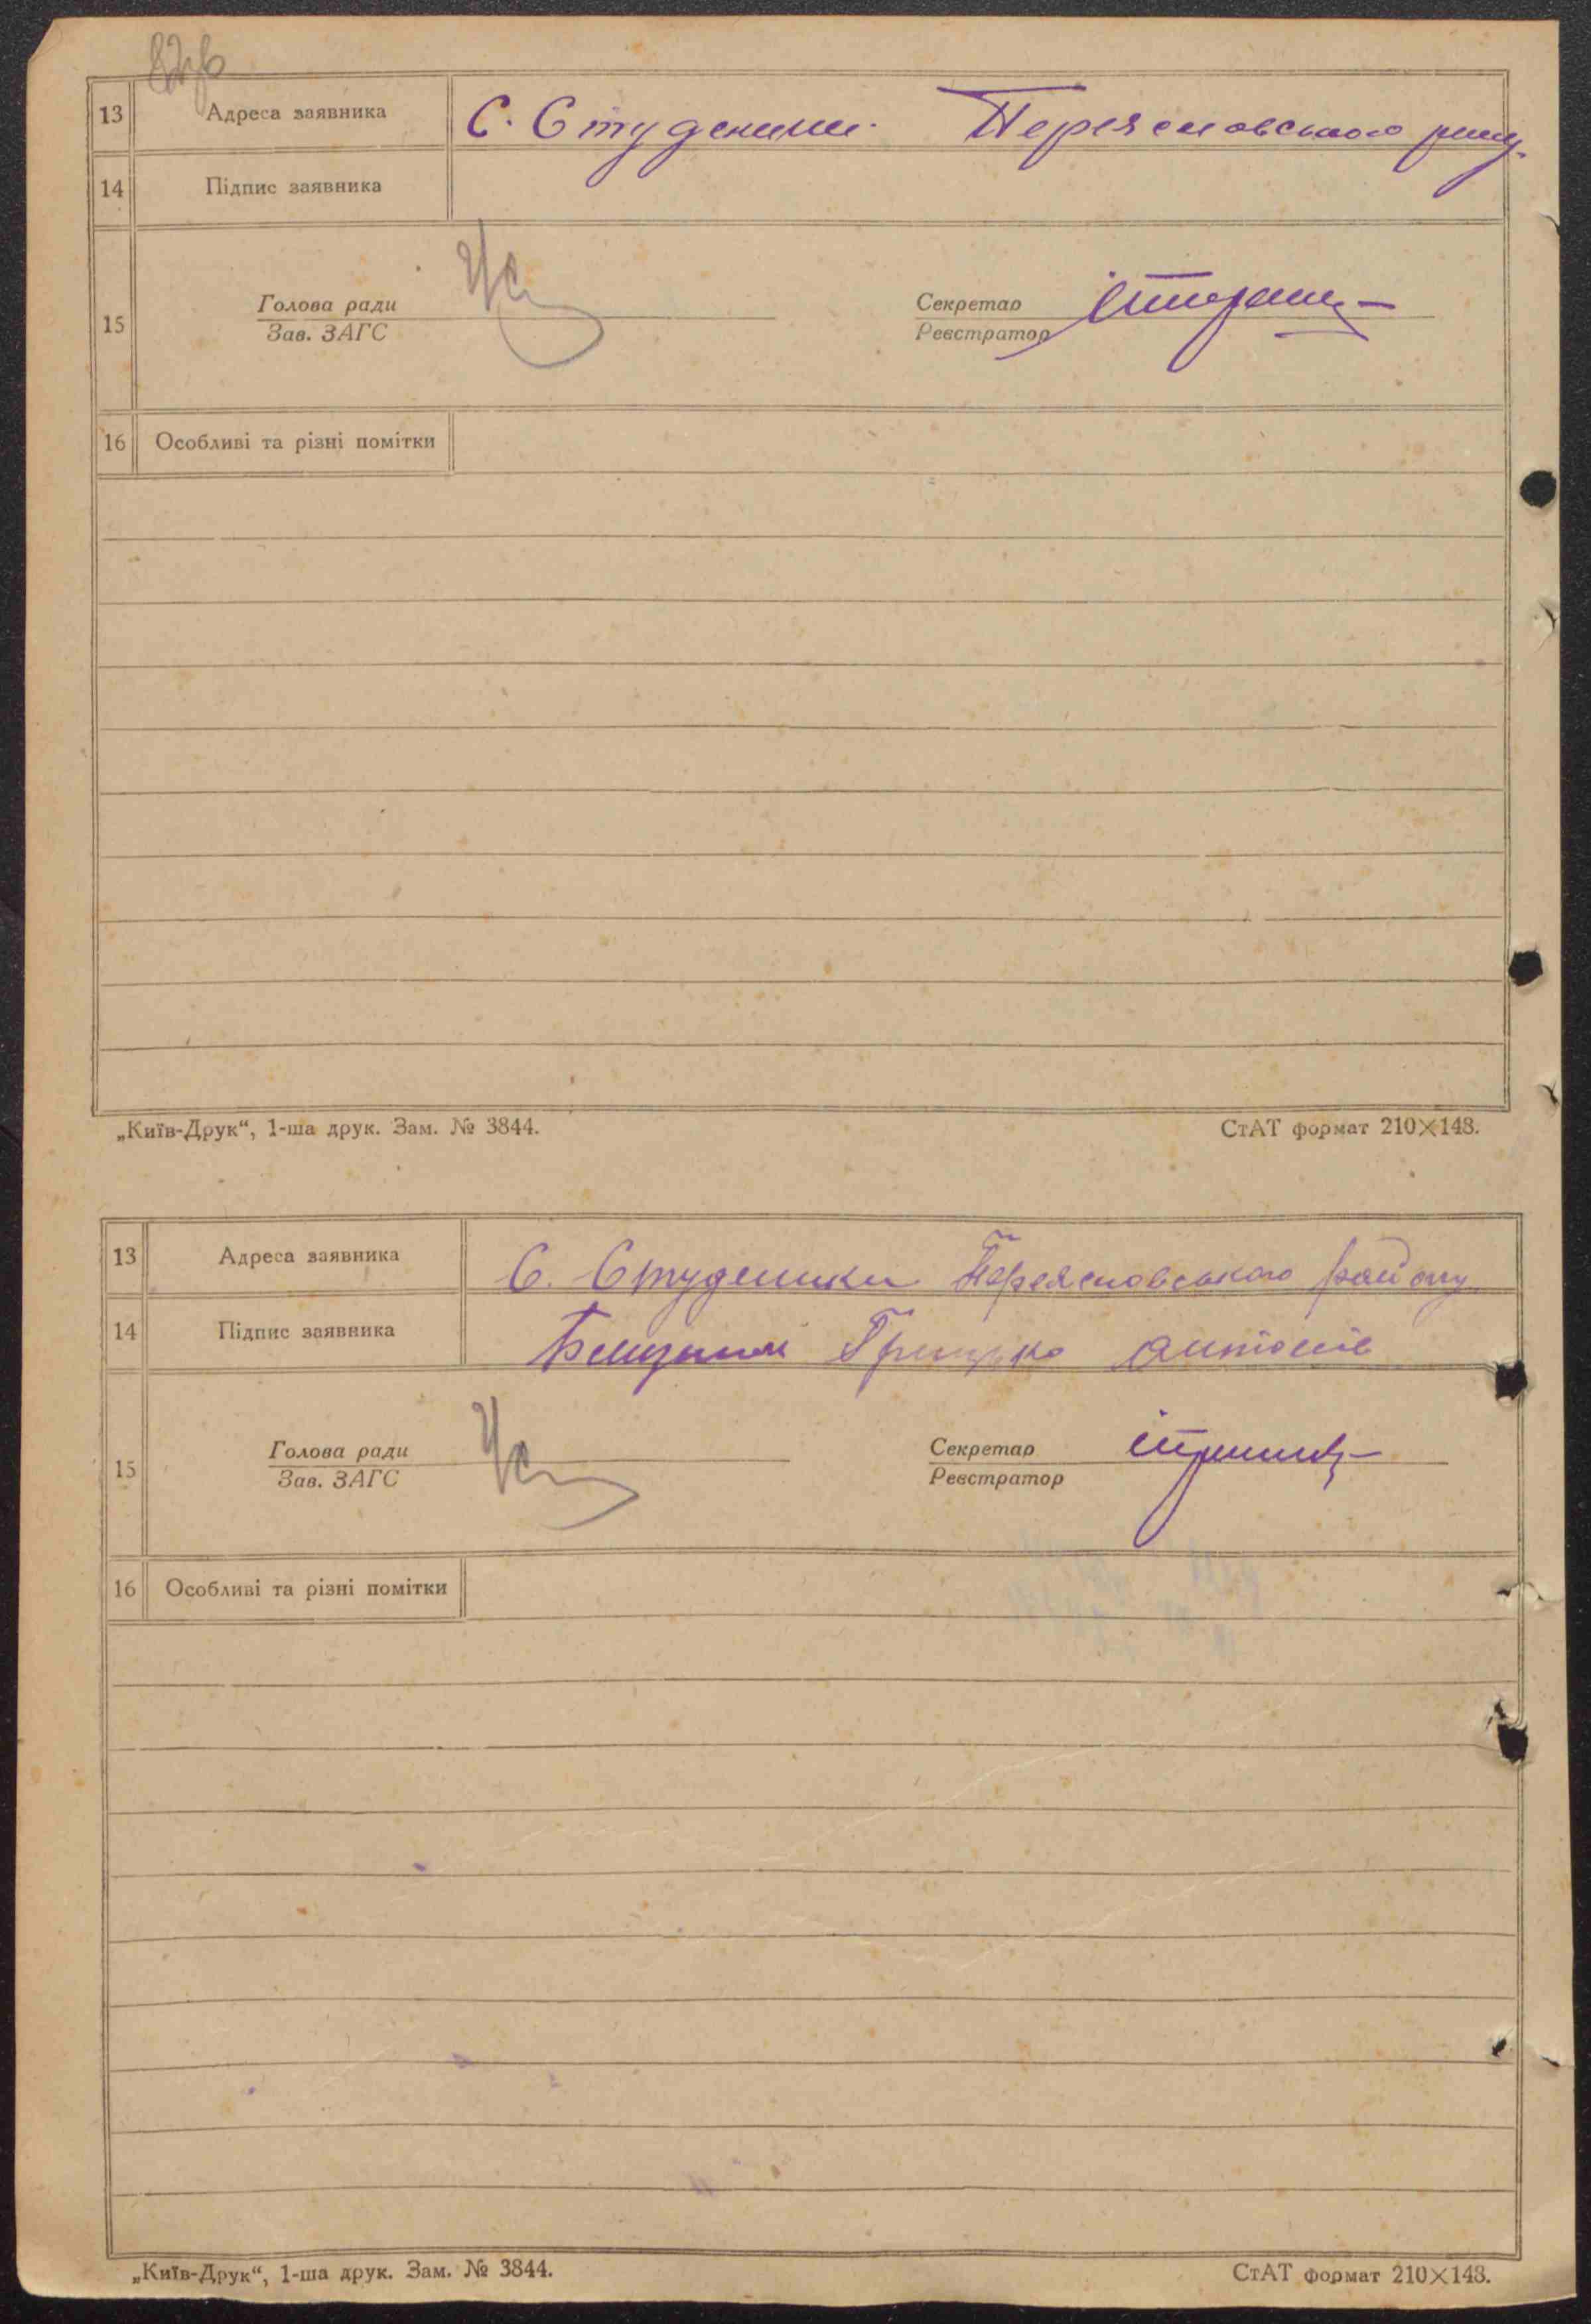 13 Адреса заявника С. Студеники Переяславського р-ну.
14 Підпис заявника
15 Голова ради Секретар
Зав. ЗАГС Реєстратор
16 Особливі та різні помітки
„Київ-Друк“, 1-ша друк. Зам. № 3844. СтАТ формат 210×148.
13 Адреса заявника С. Студеники Переяславського району
14 Підпис заявника Грицько Антонів
15 Голова ради Секретар
Зав. ЗАГС Реєстратор
16 Особливі та різні помітки
„Київ-Друк“, 1-ша друк. Зам. № 3844. СтАТ формат 210×148.